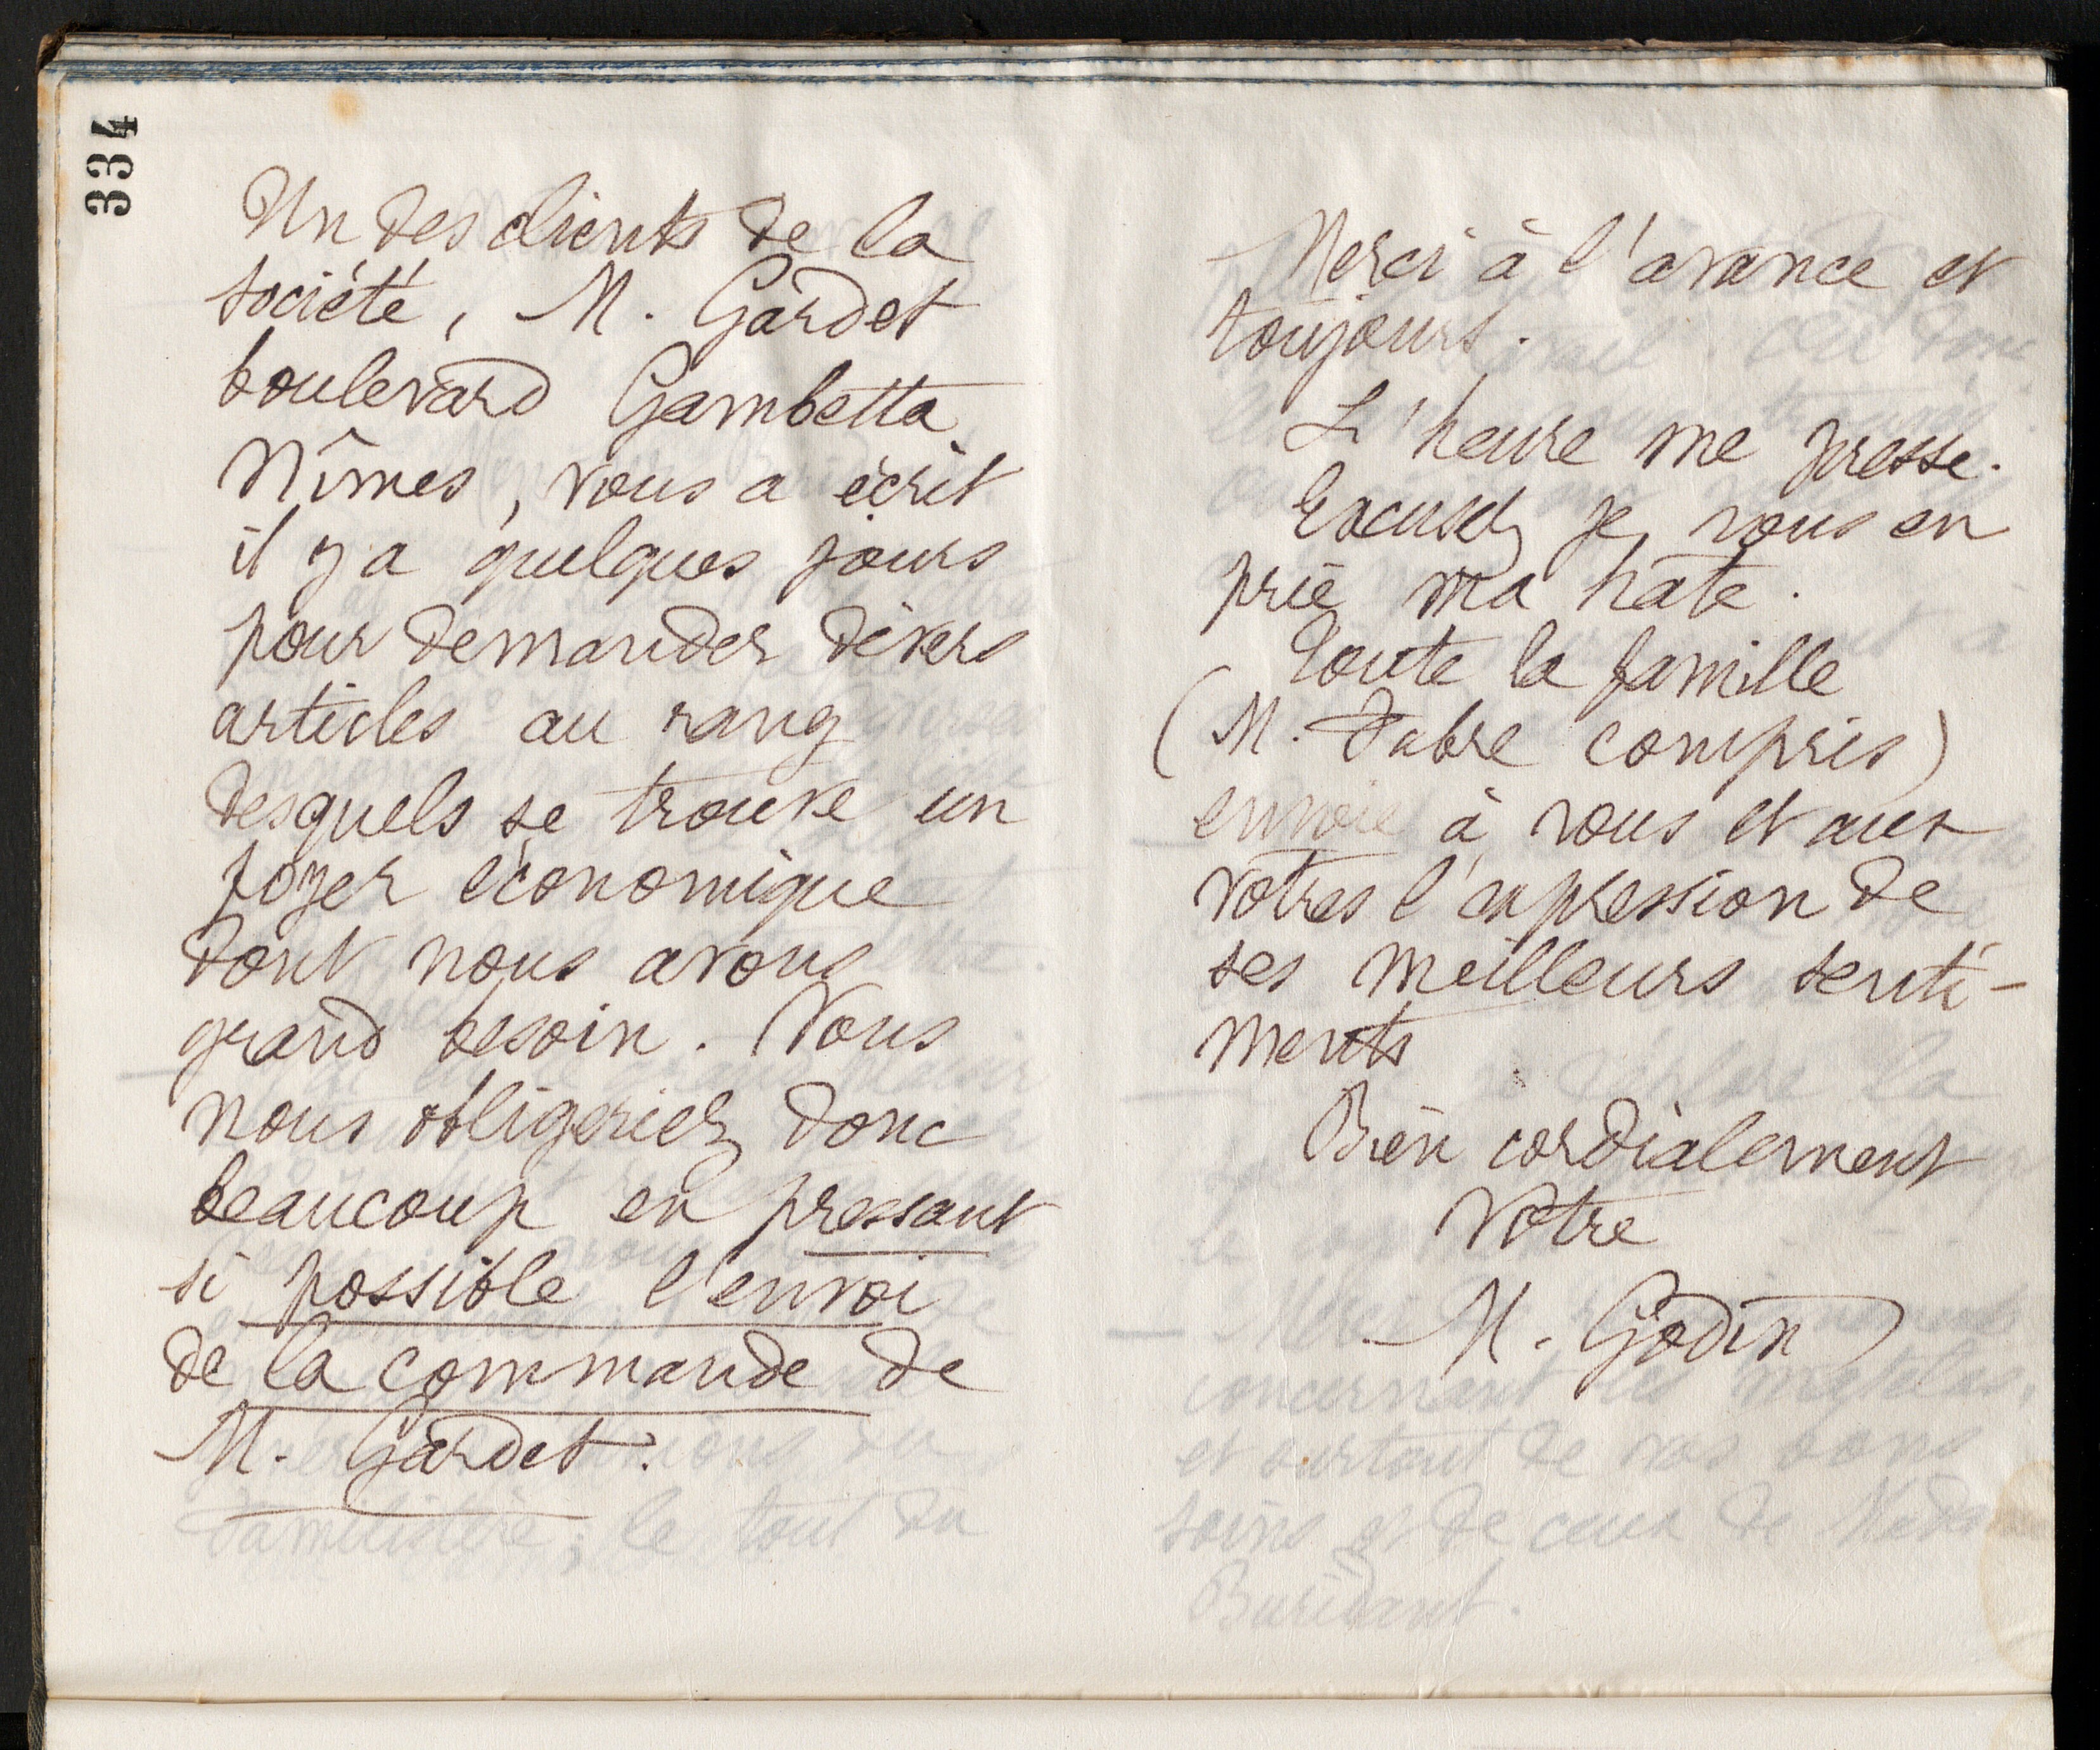 334
Un des clients de la
société, M. Gardet
boulevard Gambetta
Nîmes, vous a écrit
il y a quelques jours
pour demander divers
articles au rang
desquels se trouve un
foyer économique
dont nous avons
grand besoin. Vous
nous obligeriez donc
beaucoup en pressant
si possible l'envoi
de la commande de
M. Gardet.
Merci à l'avance et
toujours.
L'heure me presse.
Excusez je vous en
prie ma hâte.
Toute la famille
(M. Fabre compris)
envoie à vous et aux
vôtres l'expression de
ses meilleurs senti-
ments
Bien cordialement
Vôtre
M. Godin